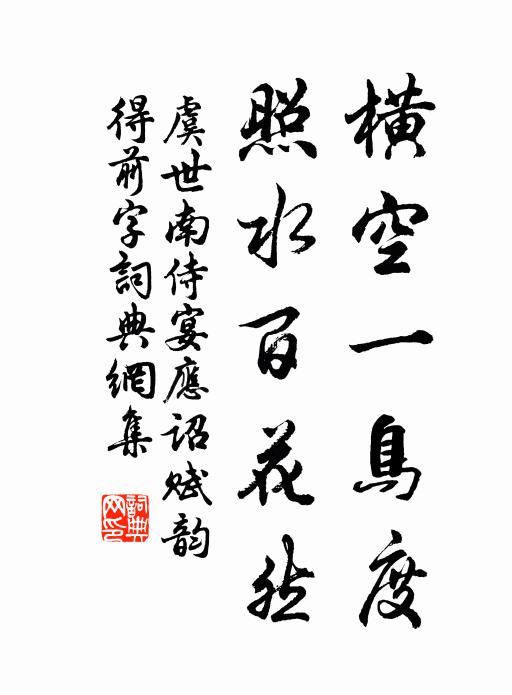 橫空一鳥度
照水百花然
虞世南侍宴應詔賦韵
得前字詞典網集
詞典
网印